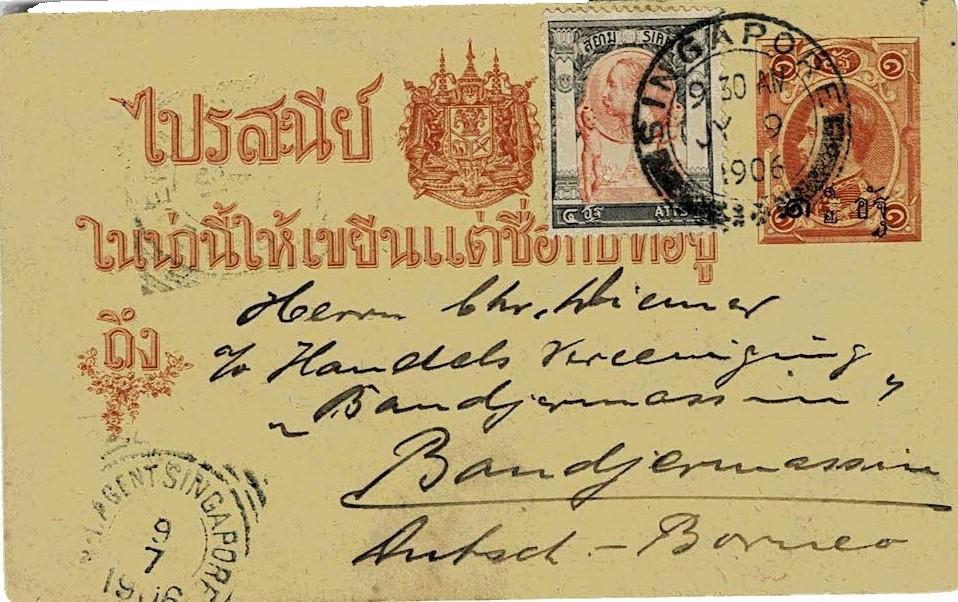 ไปรสนีย์
สยาม SIAM
๔ อฐ ATTS
SINGAPORE
9 30 AM
JY 9
1906
ในน่านี้ให้เขียนแต่ชื่อกับที่อยู่
ถึง
Herrn Chr. Wiemer
c/o Handels Vereeniging
"Bandjermassin"
Bandjermassin
Dutsch - Borneo
AGENT SINGAPORE
9
7
1906